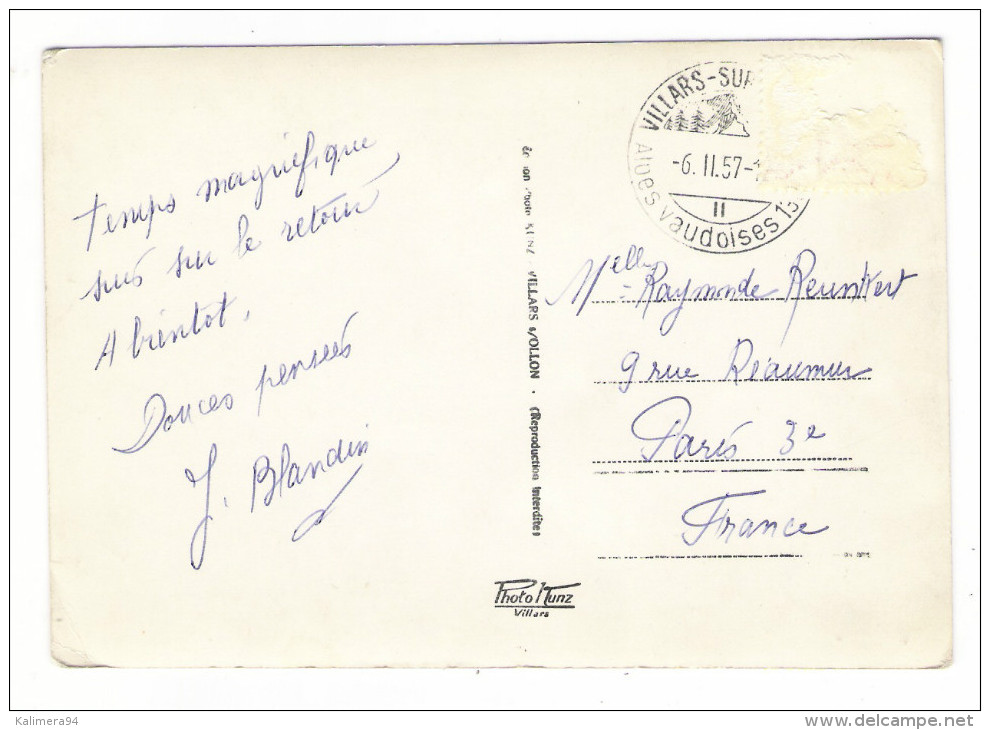 temps magnifique
suis sur le retour
A bientot,
Douces pensées
J. Blandin
VILLARS-SUR
-6. II. 57-1
II
Alpes vaudoises 13
VILLARS s/OLLON • (Reproduction interdite)
Melle Raymonde Reunkert
9 rue Réaumur
Paris 3e
France
Photo Kunz
Villars
Kalimera94
www.delcampe.net